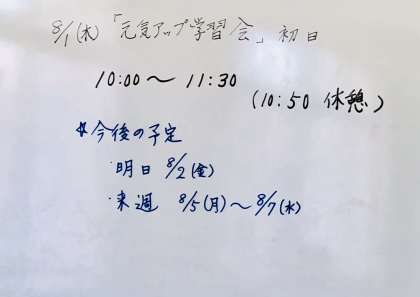 8/1(木)「元気アップ学習会」初日
10:00～11:30
(10:50 休憩)
☆今後の予定
・明日 8/2(金)
・来週 8/5(月)～8/7(水)